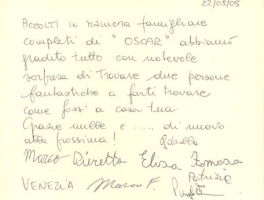 22/05/05
ACCOLTI in maniera famigliare
completi di "OSCAR" abbiamo
gradito tutto con notevole
sorpresa di trovare due persone
fantastiche a farti trovare
come fossi a casa tua
Grazie mille e ..... di nuovo
alla prossima!
Marco Elisa
Patrizia
VENEZIA Marco F.